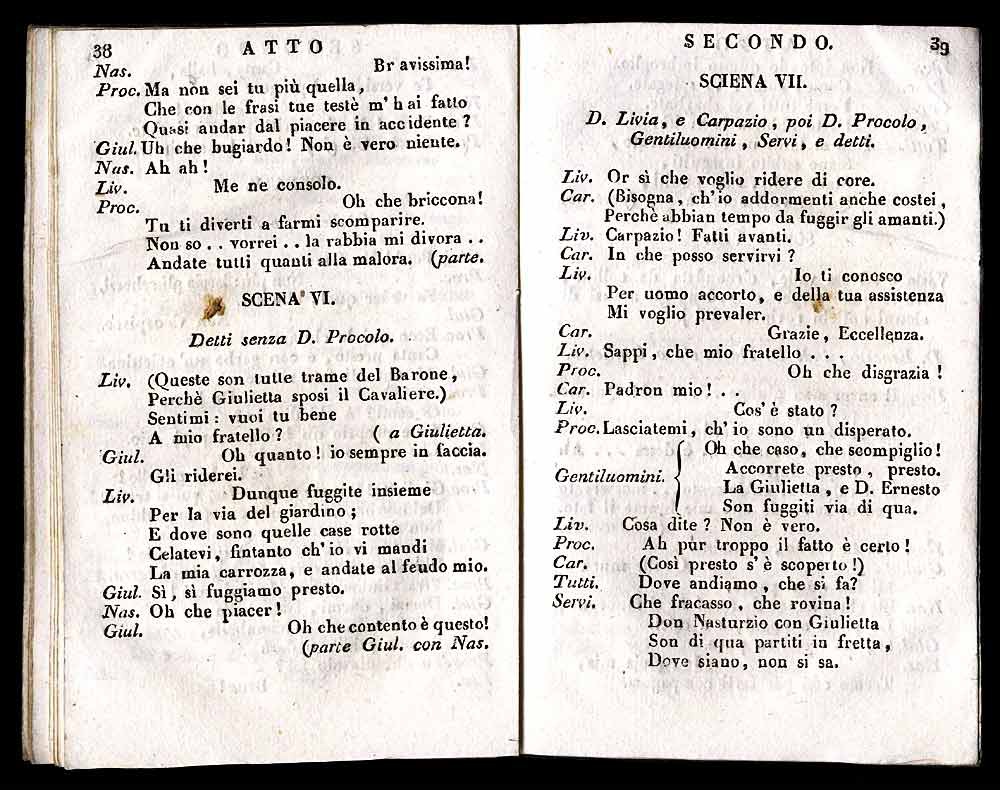 38 ATTO
Nas. Br avissima!
Proc. Ma non sei tu più quella,
Che con le frasi tue testè m' h ai fatto
Quasi andar dal piacere in accidente ?
Giul. Uh che bugiardo! Non è vero niente.
Nas. Ah ah !
Liv. Me ne consolo.
Proc. Oh che briccona!
Tu ti diverti a farmi scomparire.
Non so . . vorrei . . la rabbia mi divora . .
Andate tutti quanti alla malora. (parte.
SCENA VI.
Detti senza D. Procolo.
Liv. (Queste son tutte trame del Barone,
Perchè Giulietta sposi il Cavaliere.)
Sentimi : vuoi tu bene
A mio fratello ? ( a Giulietta.
Giul. Oh quanto ! io sempre in faccia.
Gli riderei.
Liv. Dunque fuggite insieme
Per la via del giardino ;
E dove sono quelle case rotte
Celatevi, fintanto ch' io vi mandi
La mia carrozza, e andate al feudo mio.
Giul. Sì, sì fuggiamo presto.
Nas. Oh che piacer !
Giul. Oh che contento è questo!
(parte Giul. con Nas.
SECONDO. 39
SCIENA VII.
D. Livia, e Carpazio, poi D. Procolo,
Gentiluomini, Servi, e detti.
Liv. Or sì che voglio ridere di core.
Car. (Bisogna, ch'io addormenti anche costei,
Perchè abbian tempo da fuggir gli amanti.)
Liv. Carpazio! Fatti avanti.
Car. In che posso servirvi ?
Liv. Io ti conosco
Per uomo accorto, e della tua assistenza
Mi voglio prevaler.
Car. Grazie, Eccellenza.
Liv. Sappi, che mio fratello . . .
Proc. Oh che disgrazia !
Car. Padron mio! . .
Liv. Cos' è stato ?
Proc. Lasciatemi, ch' io sono un disperato.
Oh che caso, che scompiglio!
Gentiluomini. Accorrete presto, presto.
La Giulietta, e D. Ernesto
Son fuggiti via di qua.
Liv. Cosa dite ? Non è vero.
Proc. Ah pur troppo il fatto è certo !
Car. (Così presto s' è scoperto !)
Tutti. Dove andiamo, che si fa?
Servi. Che fracasso, che rovina!
Don Nasturzio con Giulietta
Son di qua partiti in fretta,
Dove siano, non si sa.